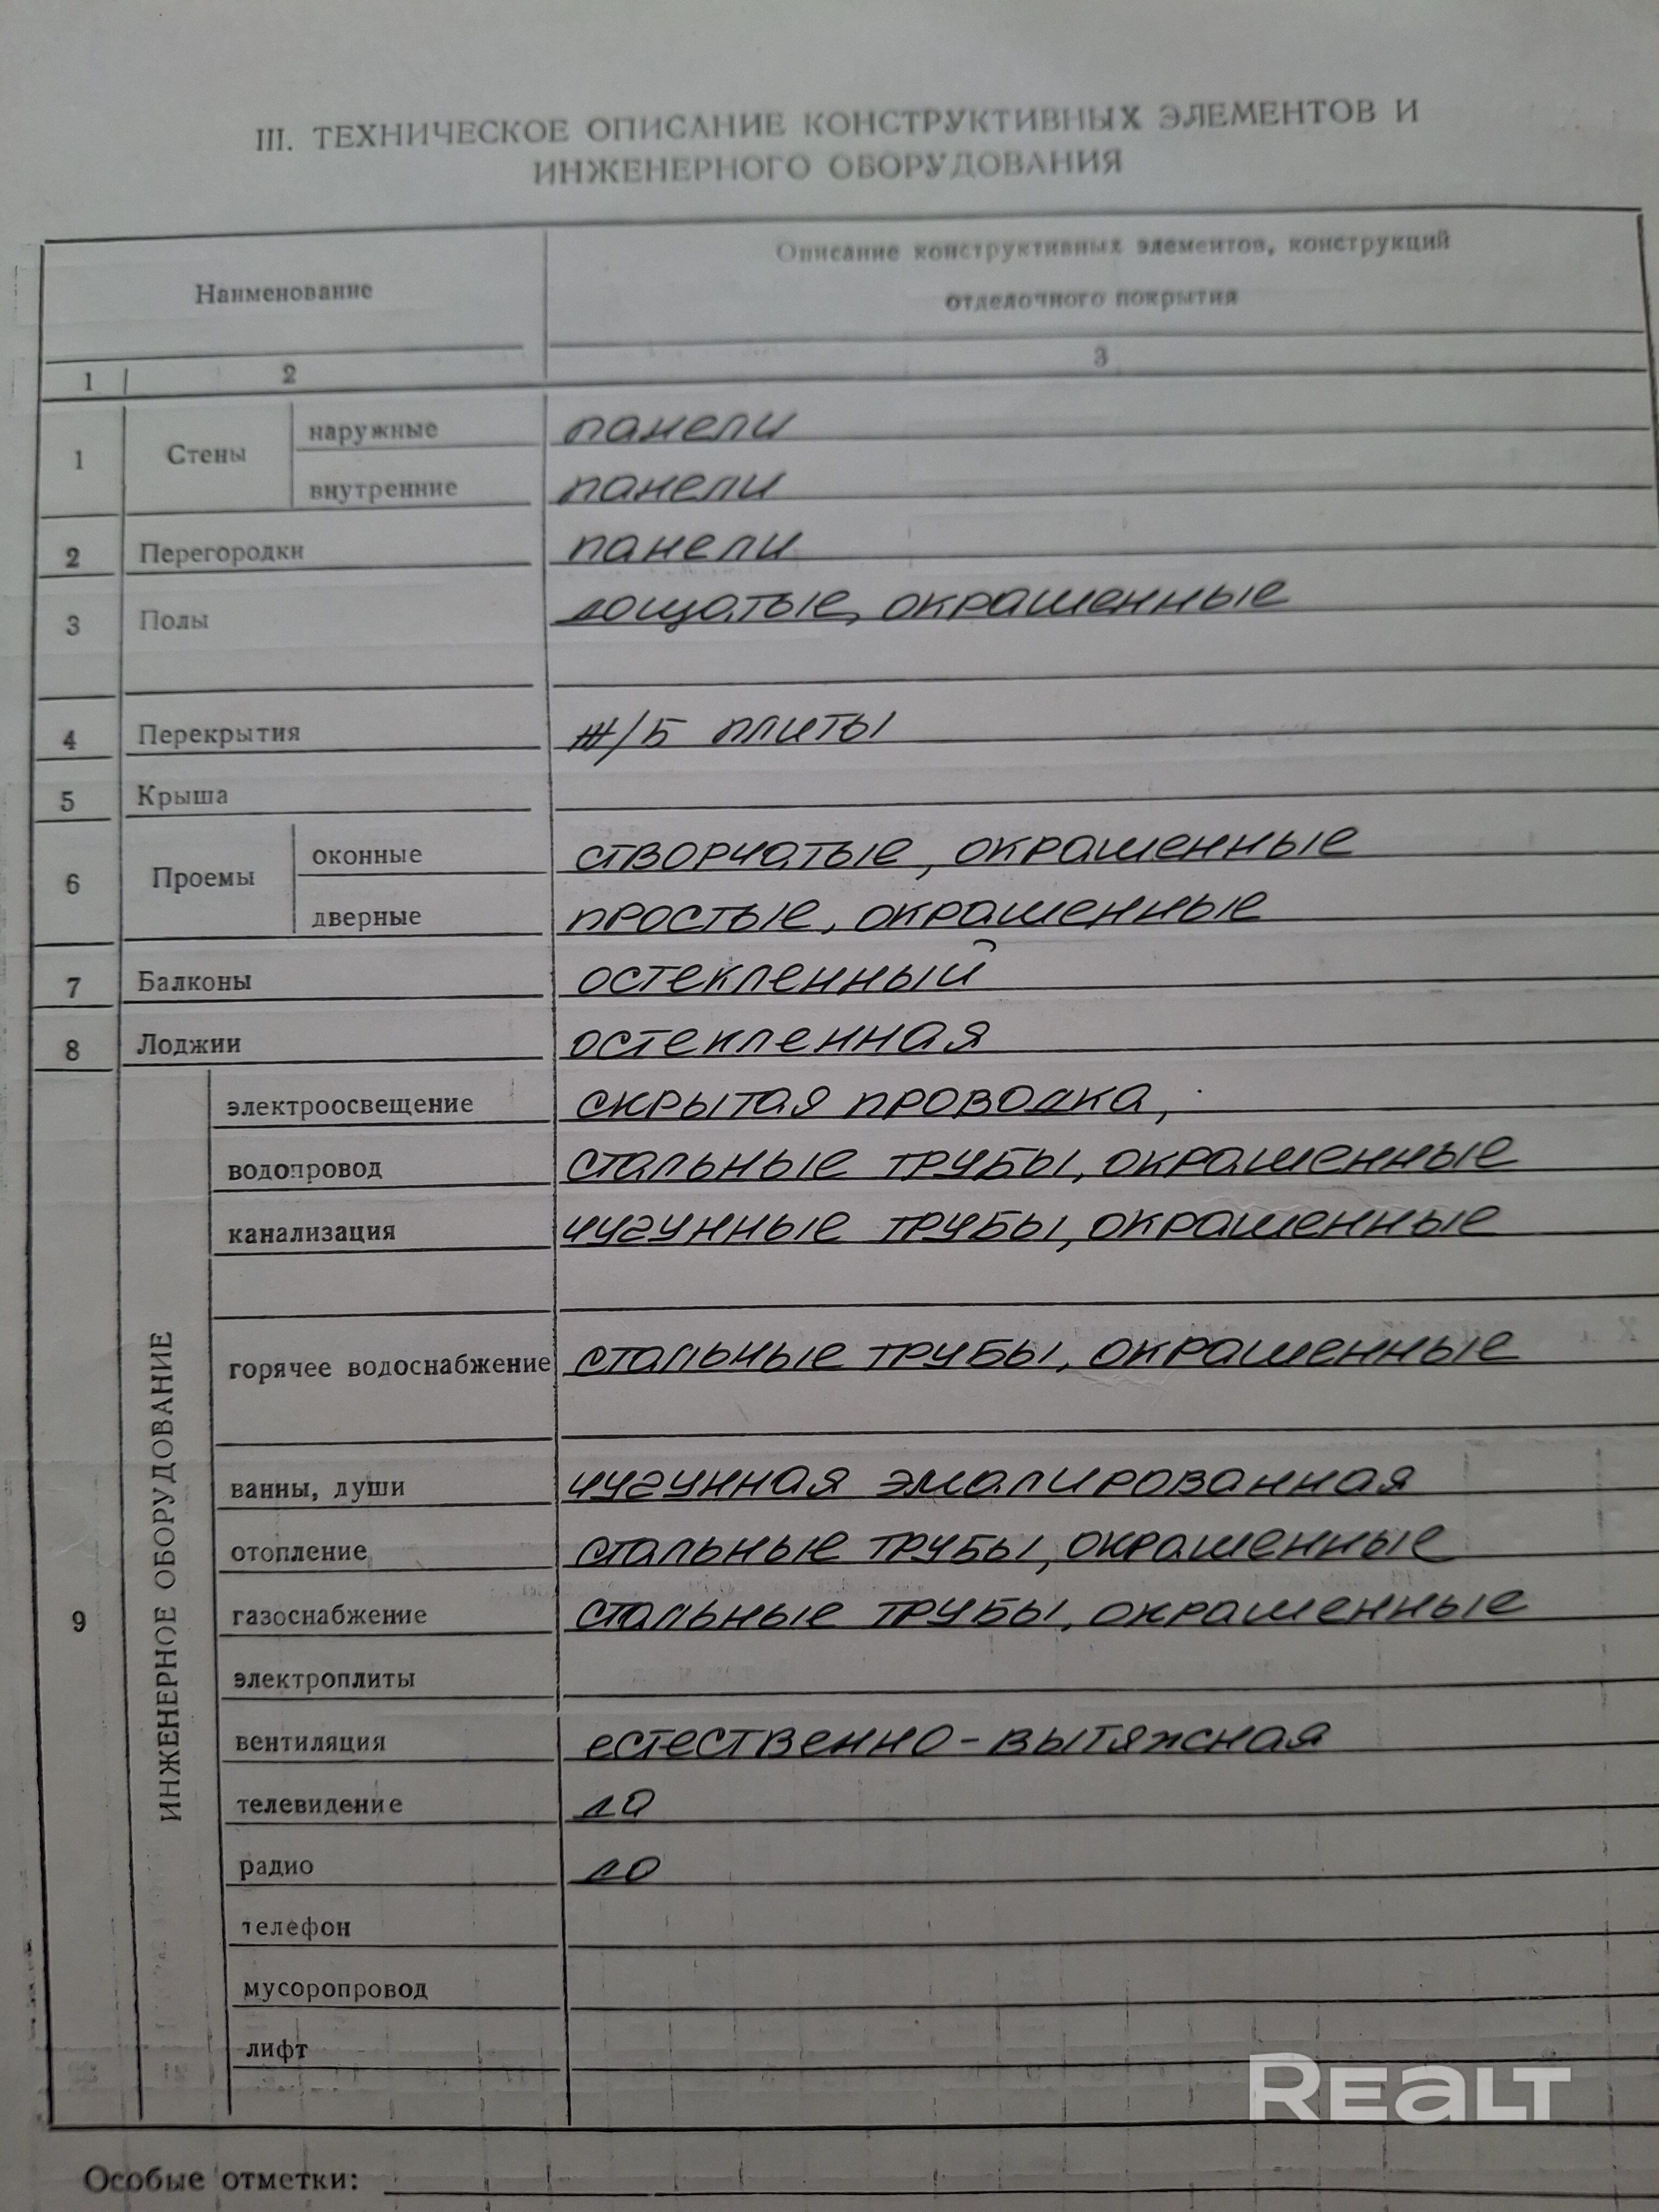 III. ТЕХНИЧЕСКОЕ ОПИСАНИЕ КОНСТРУКТИВНЫХ ЭЛЕМЕНТОВ И
ИНЖЕНЕРНОГО ОБОРУДОВАНИЯ
Наименование
Описание конструктивных элементов, конструкций
отделочного покрытия
1 2 3
1 Стены наружные панели
внутренние панели
2 Перегородки панели
3 Полы дощатые, окрашенные
4 Перекрытия ж/б плиты
5 Крыша
6 Проемы оконные створчатые, окрашенные
дверные простые, окрашенные
7 Балконы остекленный
8 Лоджии остекленная
9 ИНЖЕНЕРНОЕ ОБОРУДОВАНИЕ
электроосвещение скрытая проводка,
водопровод стальные трубы, окрашенные
канализация чугунные трубы, окрашенные
горячее водоснабжение стальные трубы, окрашенные
ванны, души чугунная эмалированная
отопление стальные трубы, окрашенные
газоснабжение стальные трубы, окрашенные
электроплиты
вентиляция естественно-вытяжная
телевидение да
радио да
телефон
мусоропровод
лифт
REALT
Особые отметки: